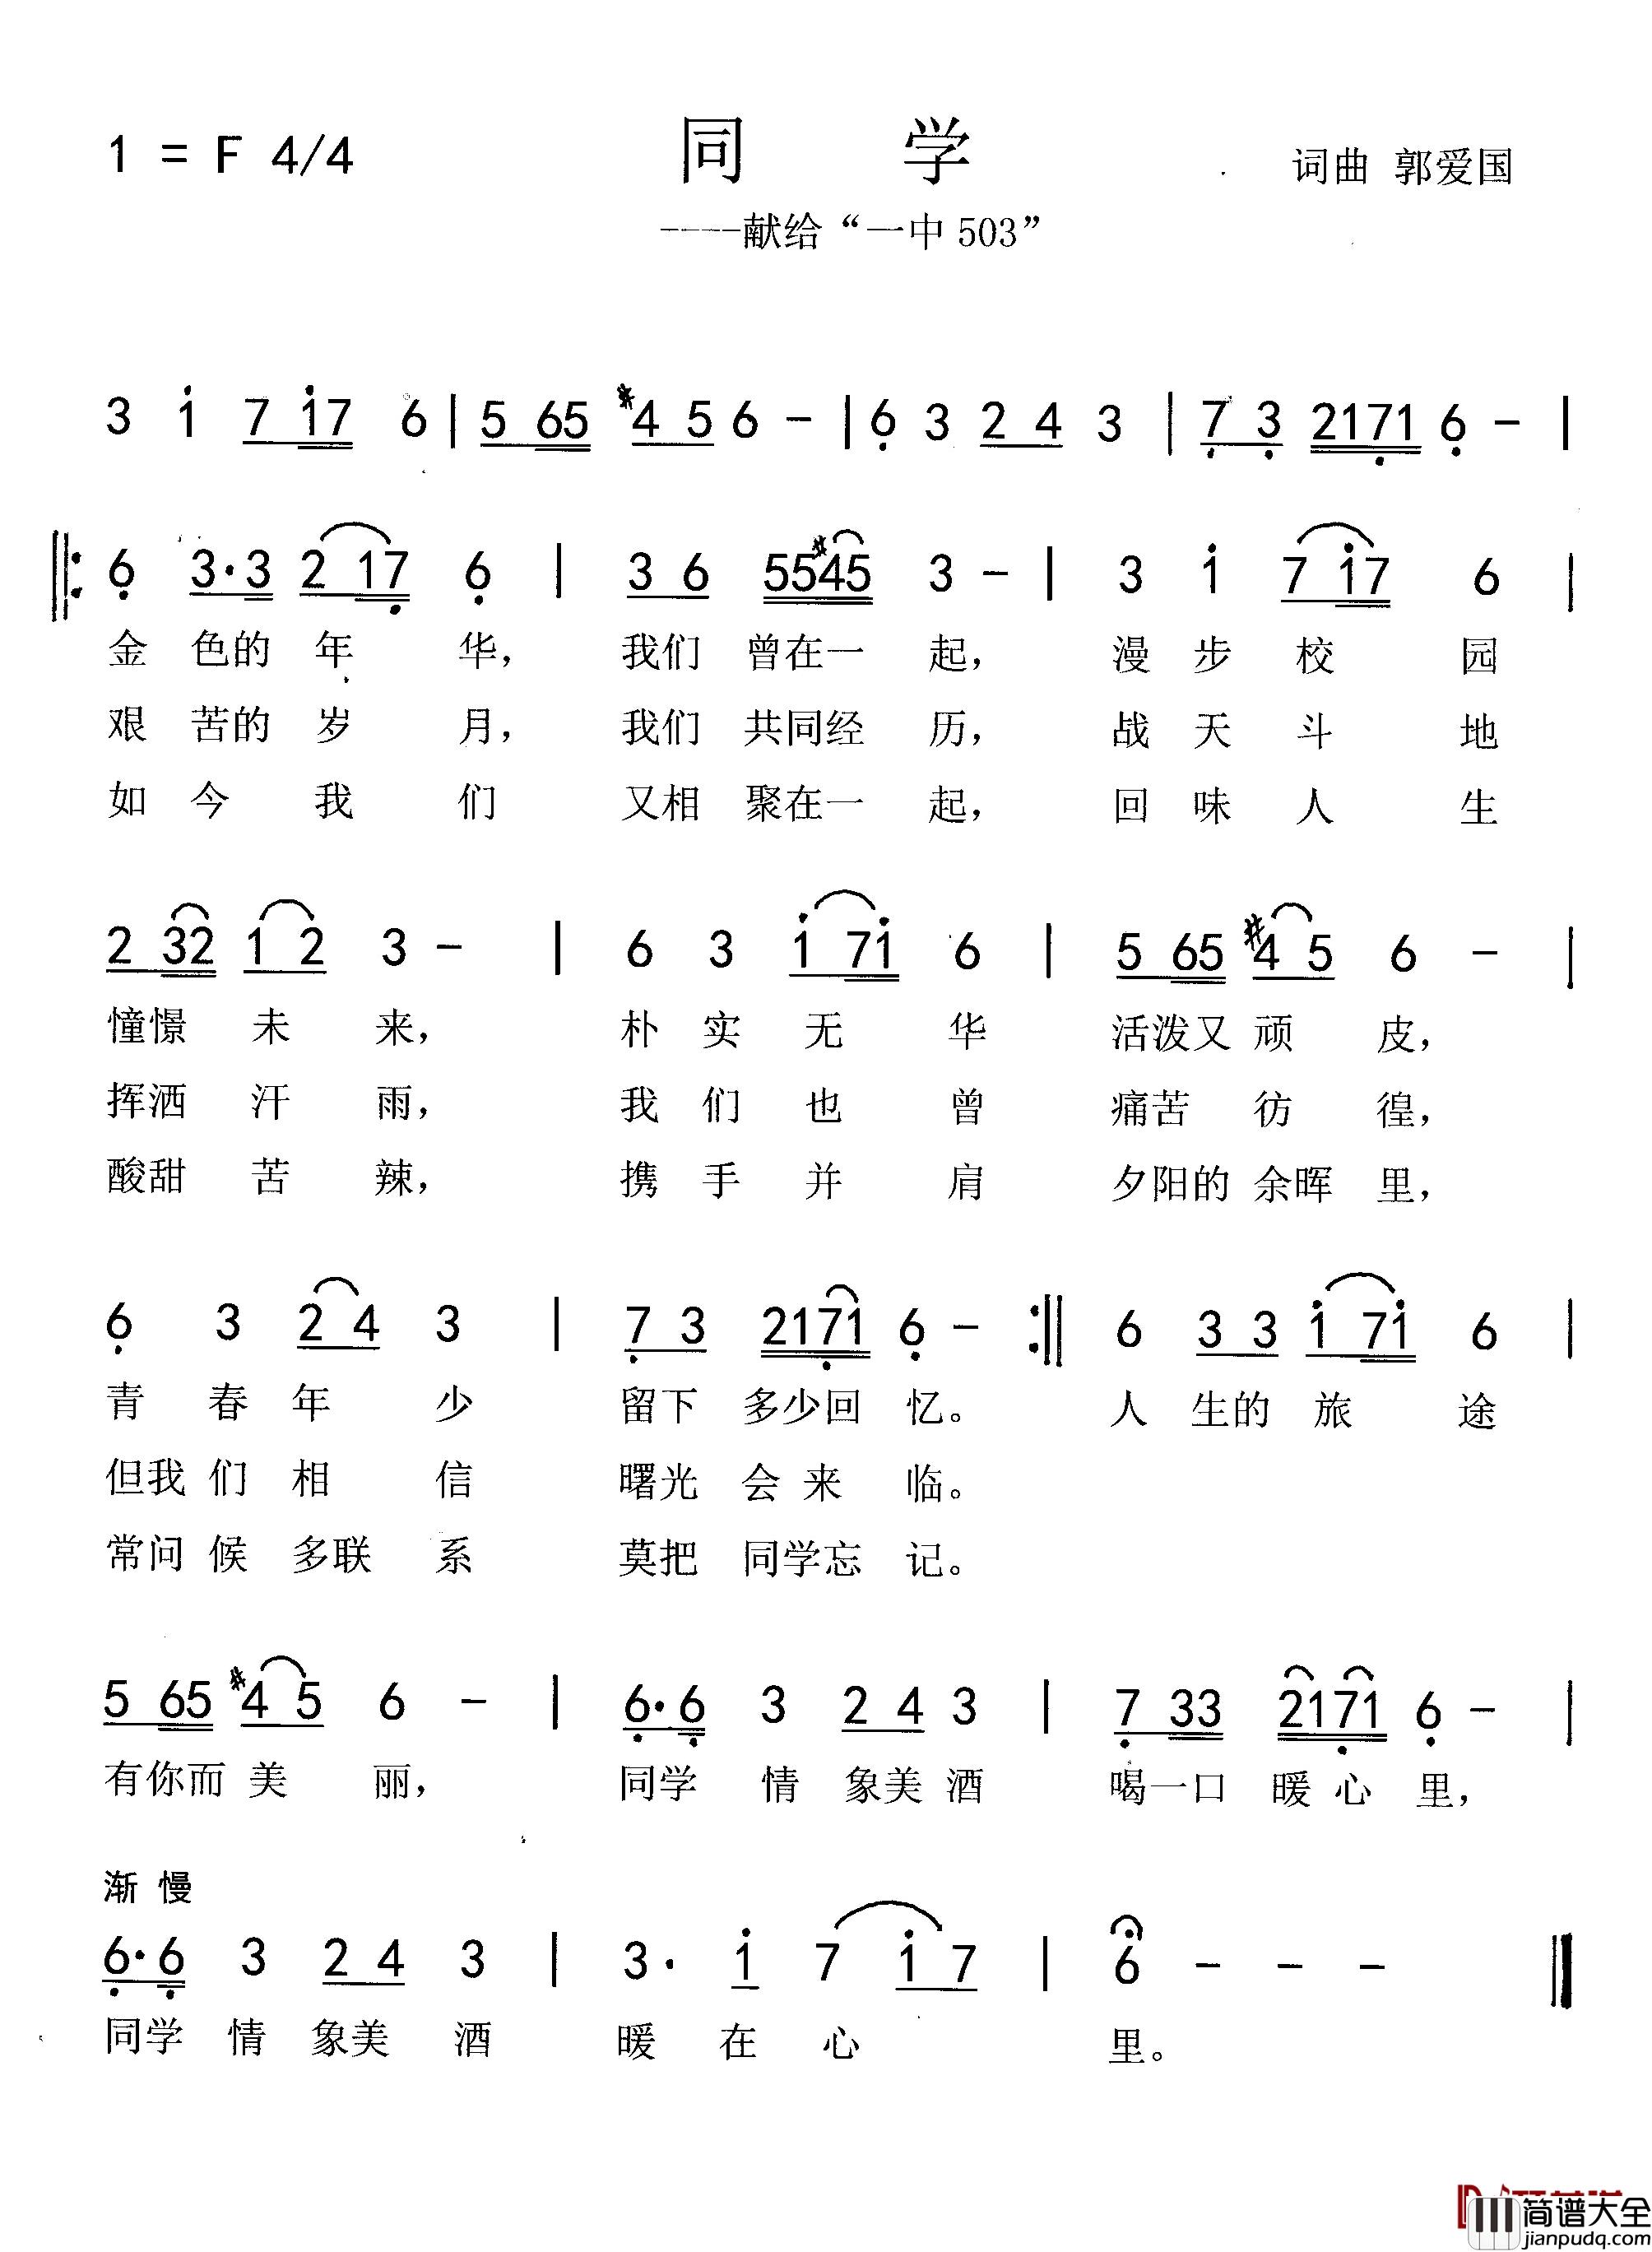 1 = F 4/4 同 学 词曲 郭爱国
----献给“一中 503”
3 i 7 i7 6 | 5 65 #4 5 6 - | 6 3 2 4 3 | 7 3 2171 6 - |
‖: 6 3·3 2 17 6 | 3 6 55#45 3 - | 3 i 7 i7 6 |
金 色的 年 华, 我们 曾在一 起, 漫 步 校 园
艰 苦的 岁 月, 我们 共同经 历, 战 天 斗 地
如 今 我 们 又相 聚在一 起, 回 味 人 生
2 32 1 2 3 - | 6 3 i 7i 6 | 5 65 #4 5 6 - |
憧憬 未 来, 朴 实 无 华 活泼又 顽 皮,
挥洒 汗 雨, 我 们 也 曾 痛苦 彷 徨,
酸甜 苦 辣, 携 手 并 肩 夕阳的 余晖 里,
6 3 2 4 3 | 7 3 2171 6 - :‖ 6 3 3 i 7i 6 |
青 春 年 少 留下 多少回 忆。 人 生的 旅 途
但我 们 相 信 曙光 会 来 临。
常问 候 多联 系 莫把 同学忘 记。
5 65 #4 5 6 - | 6·6 3 2 4 3 | 7 33 2171 6 - |
有你而 美 丽, 同学 情 象美 酒 喝一口 暖 心 里,
渐 慢
6·6 3 2 4 3 | 3· i 7 i 7 | 6 - - - ‖
同学 情 象美 酒 暖 在 心 里。
简谱大全
jianpudq.com